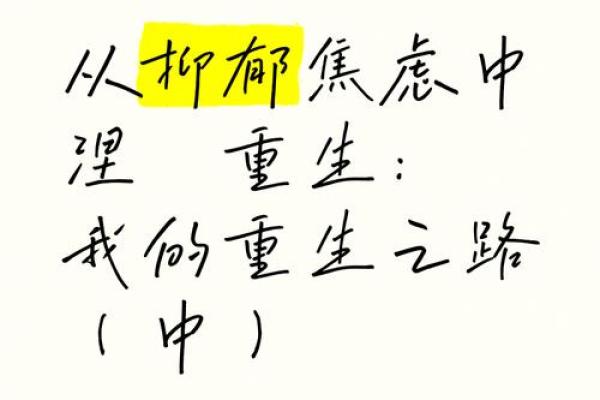 从抑郁焦虑中
涅　重生：
我的重生之路
（中）